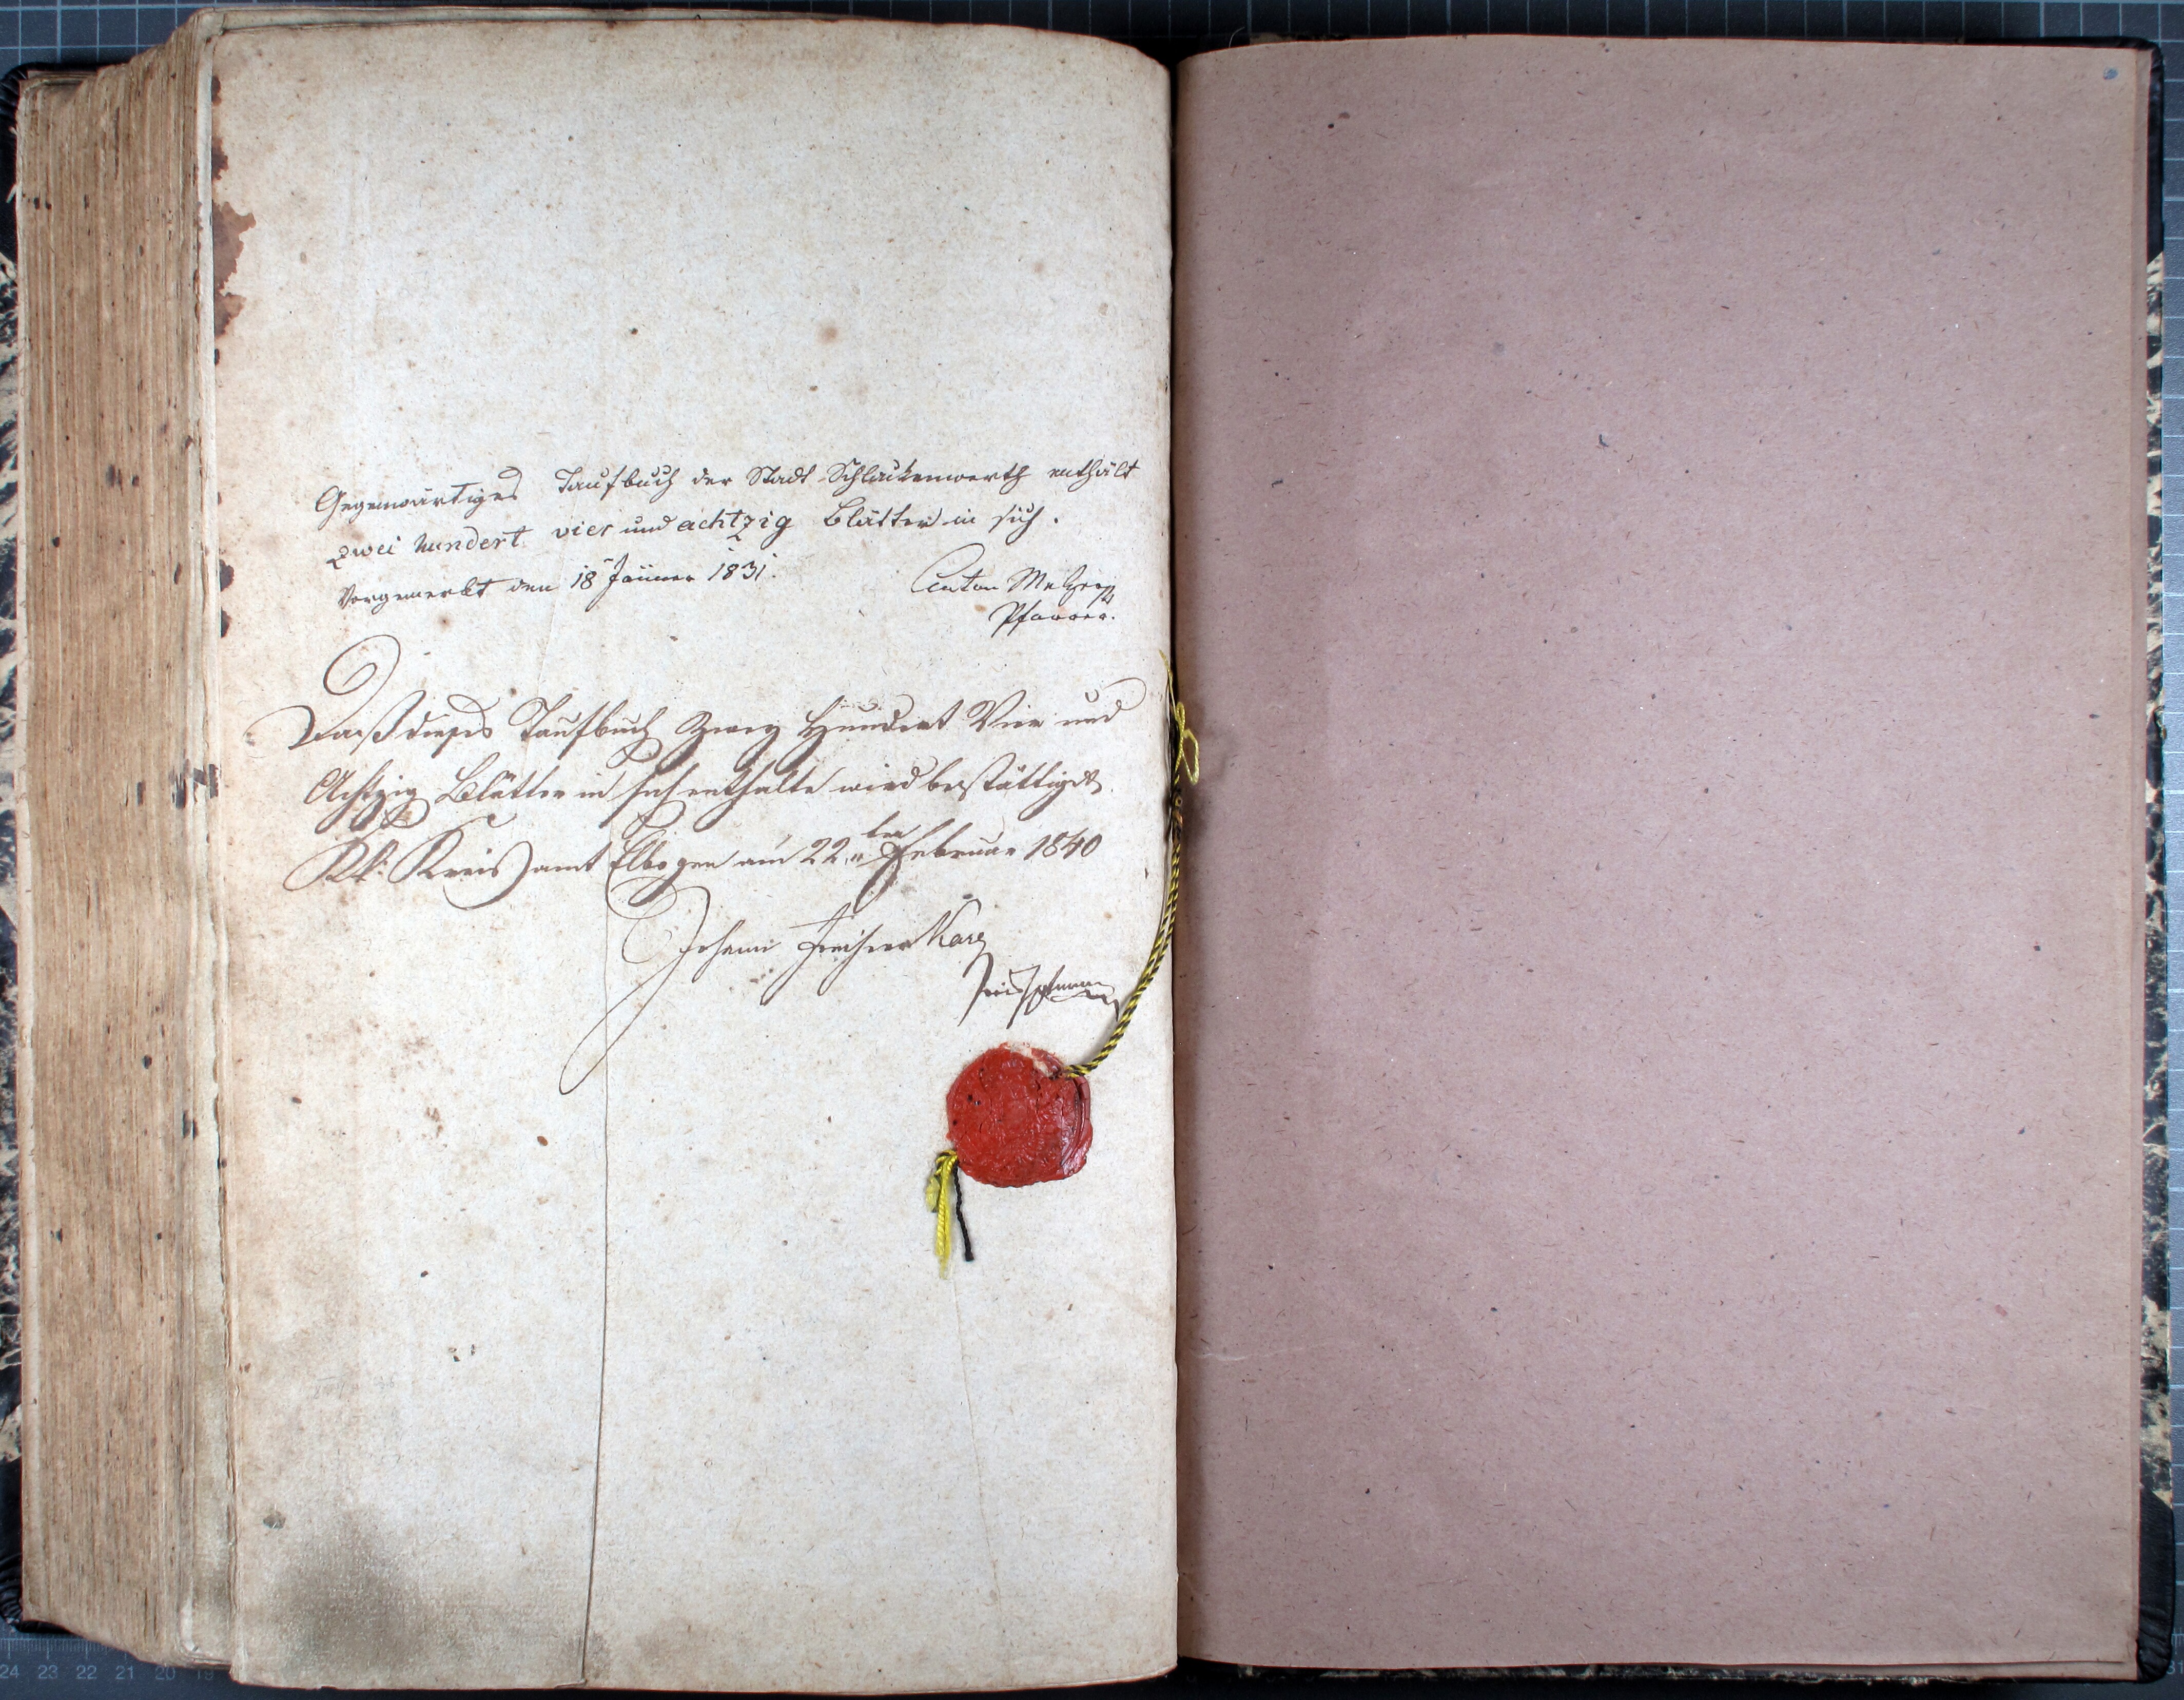 Gegenwärtiges Taufbuch der Stadt Schlackenwerth enthält
zwei hundert vier und achtzig Blätter in sich.
Vorgemerkt den 18 Jänner 1831.
Anton Melzer
Pfarrer.
Daß dieses Taufbuch Zwey Hundert Vier und
Achtzig Blätter in sich enthalte wird bestättiget.
KK: Kreisamt Elbogen am 22ten Februar 1840
Johann Freiherr Karg
24 23 22 21 20 19